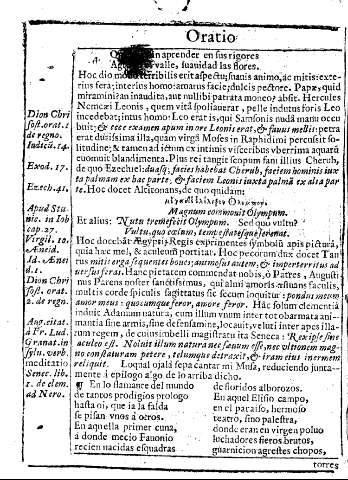 Oratio
aprender en sus rigores
valle, suauidad las flores.
Hoc dio terribilis erit aspectu; suauis animo, ac mitis: exte-
rius fera; interius homo: amarus facie; dulcis pectore. Papæ, quid
miramini? an inaudita, aut nullibi patrata moneo? absit. Hercules
Nemæi Leonis, quem vita spoliauerat, pelle indutus foris Leo
incedebat; intus homo: Leo erat is, qui Samsonis nudâ manu occu
buit; & ecce examen apum in ore Leonis erat, & fauus mellis: petra
erat durissima illa, quam virgâ Moses in Raphidim percussit so-
litudine; & tamen ad ictum ex intimis visceribus vberrima aquarū
euomuit blandimenta. Pius rei tangit scopum fani illius Cherub,
de quo Ezechuel: duasq; facies habebat Cherub, faciem hominis iux
ta palmam ex hac parte, & faciem Leonis iuxta palmā ex alia par
te. Hoc docet Alcitonans, de quo quidam:
Magnum commouit Olympum.
Et alius: Nutu tremefecit Olympum. Sed quo vultu?
Vultu, quo cœlum, tempestatesq; serenat.
Hoc docebāt Ægyptij Regis exprimentes symbolū apis picturâ,
quia hæc mel, & aculeum portitat. Hoc pecorum dux docet Tau
rus mitis erga sequentes boues; amicos suauiter, & imperterritus ad
uersus feras. Hanc pietatem commendat nobis, ô Patres, Augusti
nus Parens noster sanctissimus, qui almi amoris æstuans faculis,
multis corde spiculis sagittatus sic secum loquitur: pondus meum
amor meus: quocumque feror, amore feror. Hâc solum clementiâ
induit Adamum natura, cum illum vnum inter tot obarmata ani-
mantia sine armis, sine defensamine, locauit, veluti inter apes illa-
rum regem, de cuius imbelli magistratu ita Seneca: Rex ipse sine
aculeo est. Noluit illum natura nec sæuum esse, nec vltionem mag-
no constaturam petere, telumque detraxit, & iram eius inermem
reliquit. Loqual ojalà sepa cantar mi Musa, reduciendo junta-
mente à epilogo algo de lo arriba dicho.
Dion Chri
sost. orat. 1
de regno.
Iudicū. 14.
Exod. 17.
Ezech. 41.
Apud Stu
nic. in Iob
cap. 27.
Virgil. 10.
Æneid.
Id. Ænei
d. 1.
Dion Chri
sost. orat.
2. de regn.
Aug. citat.
à Fr. Lud.
Granat. in
sylu. verb.
meditatio
Senec. lib.
1. de clem.
ad Nero.
¶ En lo flamante del mundo
de tantos prodigios prologo
hasta oi, que ia la falda
se pisan vnos à otros.
En aquella primer cuna,
à donde mecio Fauonio
recien nacidas esquadras
de floridos alborozos.
En aquel Elisio campo,
en el paraiso, hermoso
teatro, sino palestra,
donde eran en virgen poluo
luchadores fieros, brutos,
guarnicion agrestes chopos,
torres